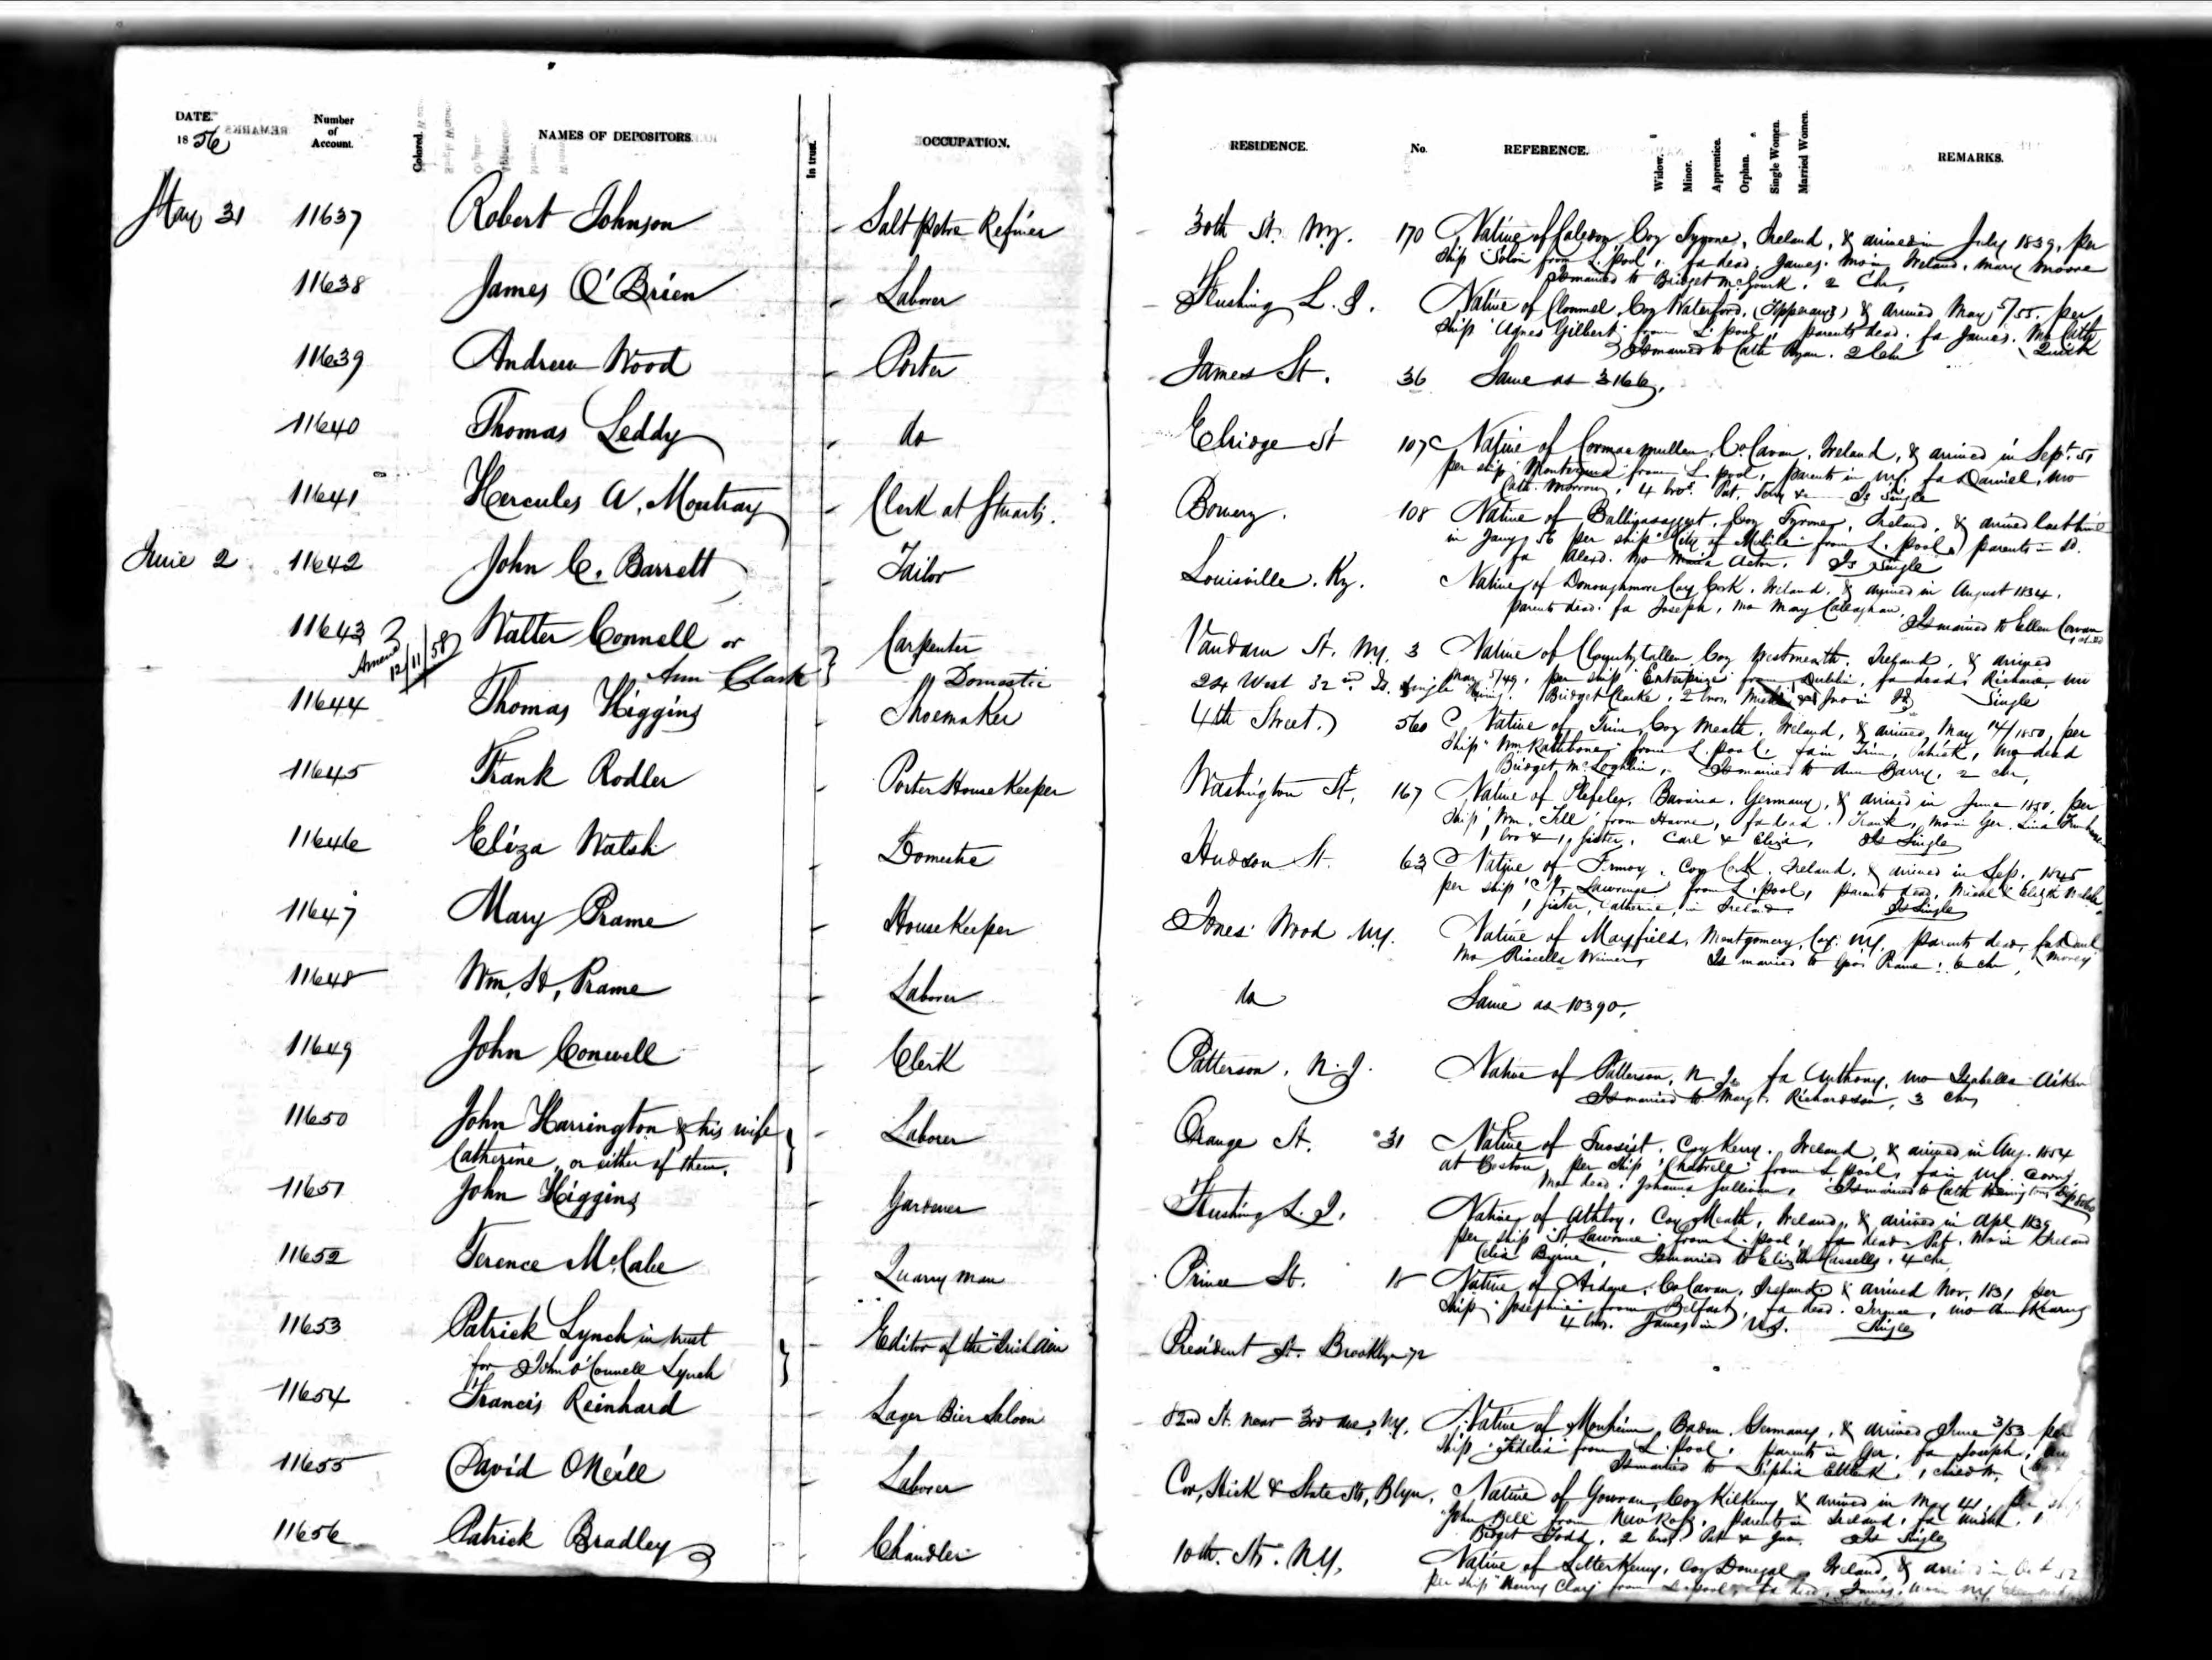 DATE. Number of Account. Colored. NAMES OF DEPOSITORS. In trust. OCCUPATION. RESIDENCE. No. REFERENCE. Widow. Minor. Apprentice. Orphan. Single Women. Married Women. REMARKS.
1856
May 31 11637 Robert Johnson Salt petre Refiner 30th St. N.Y. 170 Native of Caledon, Coy Tyrone, Ireland, & arrived in July 1839, per
ship Solon from L.pool, fa dead, James. Mo in Ireland, Mary Moore
Is married to Bridget McGourk, 2 Chn,
11638 James O'Brien Laborer Flushing L.I. Native of Clonmel, Coy Waterford, (Tipperary) & arrived May 5/55. per
ship "Agnes Gilbert" from L.pool, parents dead. fa James. Mo Cath
Is married to Cath Ryan. 2 Chn Quirk
11639 Andrew Wood Porter James St. 36 Same as 3166,
11640 Thomas Leddy do Elridge St 107 Native of Cormacmullen, Co. Cavan, Ireland, & arrived in Sept. 51
per ship Montezuma from L.pool, parents in N.Y. fa Daniel, mo
Cath. Morrow, 4 bros. Pat, Is Single
11641 Hercules A. Montray Clerk at Stuarts. Bowery. 108 Native of Coy Tyrone, Ireland, & arrived last time
in Jany 56 per ship "City of Mobile" from L.pool, parents in
fa Alexd. Mo Maria Acton. Is Single
June 2 11642 John C. Barrett Tailor Louisville, Ky. Native of Donoughmore Coy Cork, Ireland, & arrived in August 1834.
parents dead. fa Joseph, mo Mary Callaghan,
Is married to Ellen
11643 Walter Connell or Carpenter Vandam St. N.Y. 3 Native of Coy Westmeath. Ireland, & arrived
Amend 12/11/58 Ann Clark Domestic 24 West 32nd St. May 5/49, per ship "Enterprize" from Dublin, fa dead, Richard, mo
living. Bridget Clarke, 2 bros, Single
11644 Thomas Higgins Shoemaker 4th Street. 560 Native of Trim, Coy Meath, Ireland, & arrived May 14/1850, per
ship "Wm Rathbone" from L.pool, fa in Trim, Patrick, mo dead
Bridget McLoghlin, Is married to Ann Barry, 2 chn,
11645 Frank Rodler Porter House Keeper Washington St. 167 Native of Bavaria, Germany, & arrived in June 1850, per
ship "Wm. Tell" from Havre, fa dead. Frank, mo in Ger.
1 bro & 1 sister, Carl & Eliza, Is Single
11646 Eliza Walsh Domestic Hudson St. 63 Native of Fermoy, Coy Cork, Ireland, & arrived in Sep. 1845
per ship "St. Lawrence" from L.pool, parents dead,
1 sister, Catherine, in Ireland. Is Single
11647 Mary Prame House Keeper Jones' Wood N.Y. Native of Mayfield, Montgomery, Coy. N.Y. parents dead,
Mo Is married to Prame: 6 chn,
11648 Wm. H. Prame Laborer do Same as 10390,
11649 John Conwell Clerk Patterson, N.J. Native of Patterson, N.J. fa Anthony, mo Isabella Aiken
Is married to Margt. Richardson, 3 chn
11650 John Harrington & his wife Laborer Orange St. 31 Native of Tuosist, Coy Kerry, Ireland, & arrived in Aug. 1854
Catherine, or either of them. at Boston, per ship from L.pool, fa in N.Y.
Mo dead. Johanna Sullivan, Is married to Cath
11651 John Higgins Gardener Flushing L.I. Native of Athboy, Coy Meath, Ireland, & arrived in Apl 1839
per ship "St. Lawrence" from L.pool, fa dead. Pat. Mo in Ireland
Celia Byrne, Is married to Elizth Cassells, 4 chn,
11652 Terence McCabe Quarry man Prince St. 18 Native of Co Cavan, Ireland & arrived Nov. 1831 per
ship "Josephine" from Belfast, fa dead. mo Ann
4 bros. James in U.S. Single
11653 Patrick Lynch in trust Editor of the "Irish President St. Brooklyn 72
for John O'Connell Lynch
11654 Francis Reinhard Lager Bier Saloon 82nd St. near 3rd ave, N.Y. Native of Baden, Germany, & arrived June 3/53 per
ship "Fidelia" from L.pool, parents in Ger. fa Joseph,
Is married to Sophia
11655 David O'Neill Laborer Cor, Hick & State Sts, Blyn. Native of Gowran, Coy Kilkenny & arrived in May 41,
"John Bell" from New Ross, parents in Ireland, fa
Bridget Todd, 2 bros. Pat & Jno. Is Single
11656 Patrick Bradley Chandler 10th. St. N.Y. Native of Letterkenny, Coy Donegal, Ireland, &
per ship "Henry Clay" from L.pool, fa dead, James,